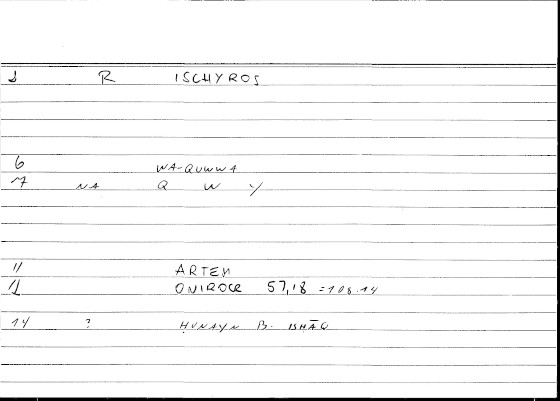 1 R ISCHYROS
6 WA-QUWWA
7 NA Q W Y
11 ARTEM
12 ONIROCR 57,18 = 108.14
14 ? ḤUNAYN B. ISḤĀQ